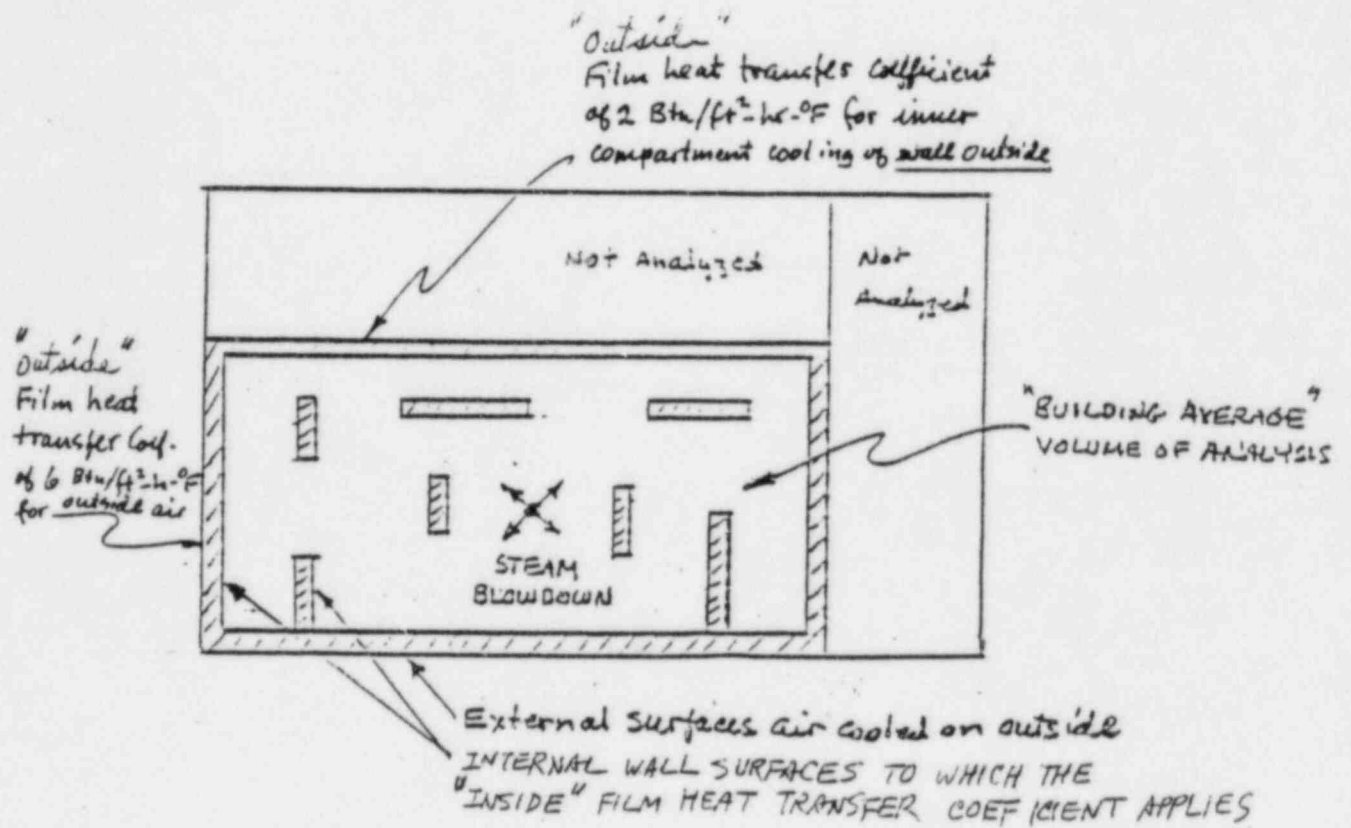 "Outside"
Film heat transfer coefficient
of 2 Btu/ft²-hr-°F for inner
compartment cooling of wall outside
Not Analyzed
Not
Analyzed
"Outside"
Film heat
transfer Coef.
of 6 Btu/ft²-h-°F
for outside air
"BUILDING AVERAGE"
VOLUME OF ANALYSIS
STEAM
BLOWDOWN
External surfaces air cooled on outside
INTERNAL WALL SURFACES TO WHICH THE
"INSIDE" FILM HEAT TRANSFER COEFICIENT APPLIES